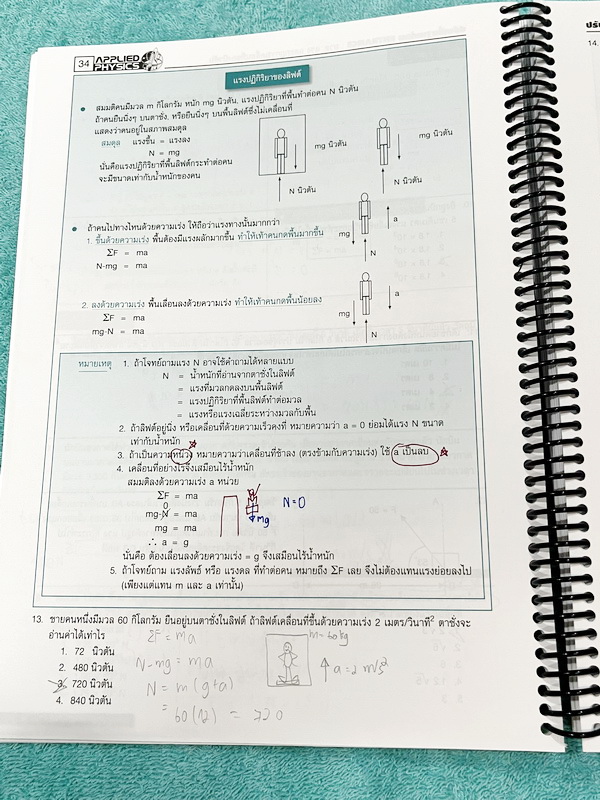 34 APPLIED PHYSICS
แรงปฏิกิริยาของลิฟต์
• สมมติคนมีมวล m กิโลกรัม หนัก mg นิวตัน, แรงปฏิกิริยาที่พื้นทำต่อคน N นิวตัน
ถ้าคนยืนนิ่งๆ บนตาชั่ง, หรือยืนนิ่งๆ บนพื้นลิฟต์ซึ่งไม่เคลื่อนที่
แสดงว่าคนอยู่ในสภาพสมดุล
สมดุล แรงขึ้น = แรงลง
N = mg
นั่นคือแรงปฏิกิริยาที่พื้นลิฟต์กระทำต่อคน
จะมีขนาดเท่ากับน้ำหนักของคน
mg นิวตัน
N นิวตัน
mg นิวตัน
N นิวตัน
• ถ้าคนไปทางไหนด้วยความเร่ง ให้ถือว่าแรงทางนั้นมากกว่า
1. ขึ้นด้วยความเร่ง พื้นต้องมีแรงผลักมากขึ้น ทำให้เท้าคนกดพื้นมากขึ้น
ΣF = ma
N-mg = ma
a
mg
N
2. ลงด้วยความเร่ง พื้นเลื่อนลงด้วยความเร่ง ทำให้เท้าคนกดพื้นน้อยลง
ΣF = ma
mg-N = ma
a
mg
N
หมายเหตุ 1. ถ้าโจทย์ถามแรง N อาจใช้คำถามได้หลายแบบ
N = น้ำหนักที่อ่านจากตาชั่งในลิฟต์
= แรงที่มวลกดลงบนพื้นลิฟต์
= แรงปฏิกิริยาที่พื้นลิฟต์ทำต่อมวล
= แรงหรือแรงเฉลี่ยระหว่างมวลกับพื้น
2. ถ้าลิฟต์อยู่นิ่ง หรือเคลื่อนที่ด้วยความเร็วคงที่ หมายความว่า a = 0 ย่อมได้แรง N ขนาด
เท่ากับน้ำหนัก
3. ถ้าเป็นความหน่วง หมายความว่าเคลื่อนที่ช้าลง (ตรงข้ามกับความเร่ง) ใช้ a เป็นลบ
4. เคลื่อนที่อย่างไรจึงเสมือนไร้น้ำหนัก
สมมติลงด้วยความเร่ง a หน่วย
ΣF = ma
0
mg-N = ma
mg = ma
∴ a = g
mg
N=0
นั่นคือ ต้องเลื่อนลงด้วยความเร่ง = g จึงเสมือนไร้น้ำหนัก
5. ถ้าโจทย์ถาม แรงลัพธ์ หรือ แรงดล ที่ทำต่อคน หมายถึง ΣF เลย จึงไม่ต้องแทนแรงย่อยลงไป
(เพียงแต่แทน m และ a เท่านั้น)
13. ชายคนหนึ่งมีมวล 60 กิโลกรัม ยืนอยู่บนตาชั่งในลิฟต์ ถ้าลิฟต์เคลื่อนที่ขึ้นด้วยความเร่ง 2 เมตร/วินาที² ตาชั่งจะ
อ่านค่าได้เท่าไร
1. 72 นิวตัน
2. 480 นิวตัน
3. 720 นิวตัน
4. 840 นิวตัน
ΣF = ma
N-mg = ma
N = m(g+a)
= 60(12) = 720
m=60kg
a=2 m/s²
14.